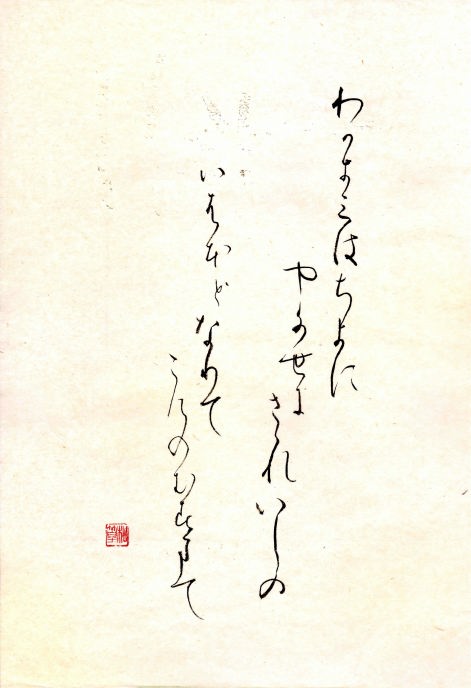 わかきみはちよに
やちよに
さゝれいしの
いはほと
なりて
こけのむすまて